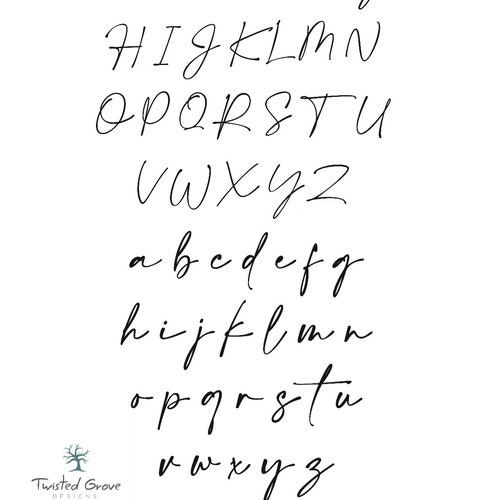 H I J K L M N
O P Q R S T U
V W X Y Z
a b c d e f g
h i j k l m n
o p q r s t u
v w x y z
Twisted Grove
DESIGNS